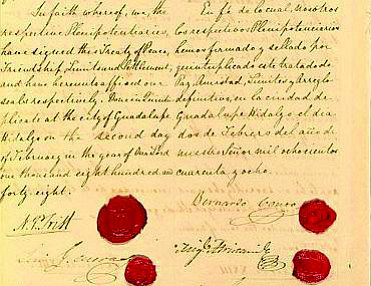 In faith whereof, we, the
respective Plenipotentiaries,
have signed this Treaty of Peace,
Friendship, Limits and Settlement,
and have hereunto affixed our
seals respectively. Done in Quintu-
plicate at the city of Guadalupe
Hidalgo on the second day
of February in the year of
one thousand eight hundred and
forty eight.
En fé de lo cual, nosotros
los respectivos Plenipotenciarios
hemos firmado y sellado por
quintuplicado este tratado de
Paz, Amistad, Limites y Arreglo
definitivo, en la ciudad de
Guadalupe Hidalgo el dia
dos de Febrero del año de
nuestro Señor mil ochocientos
cuarenta y ocho.
N. P. Trist
Bernardo Couto